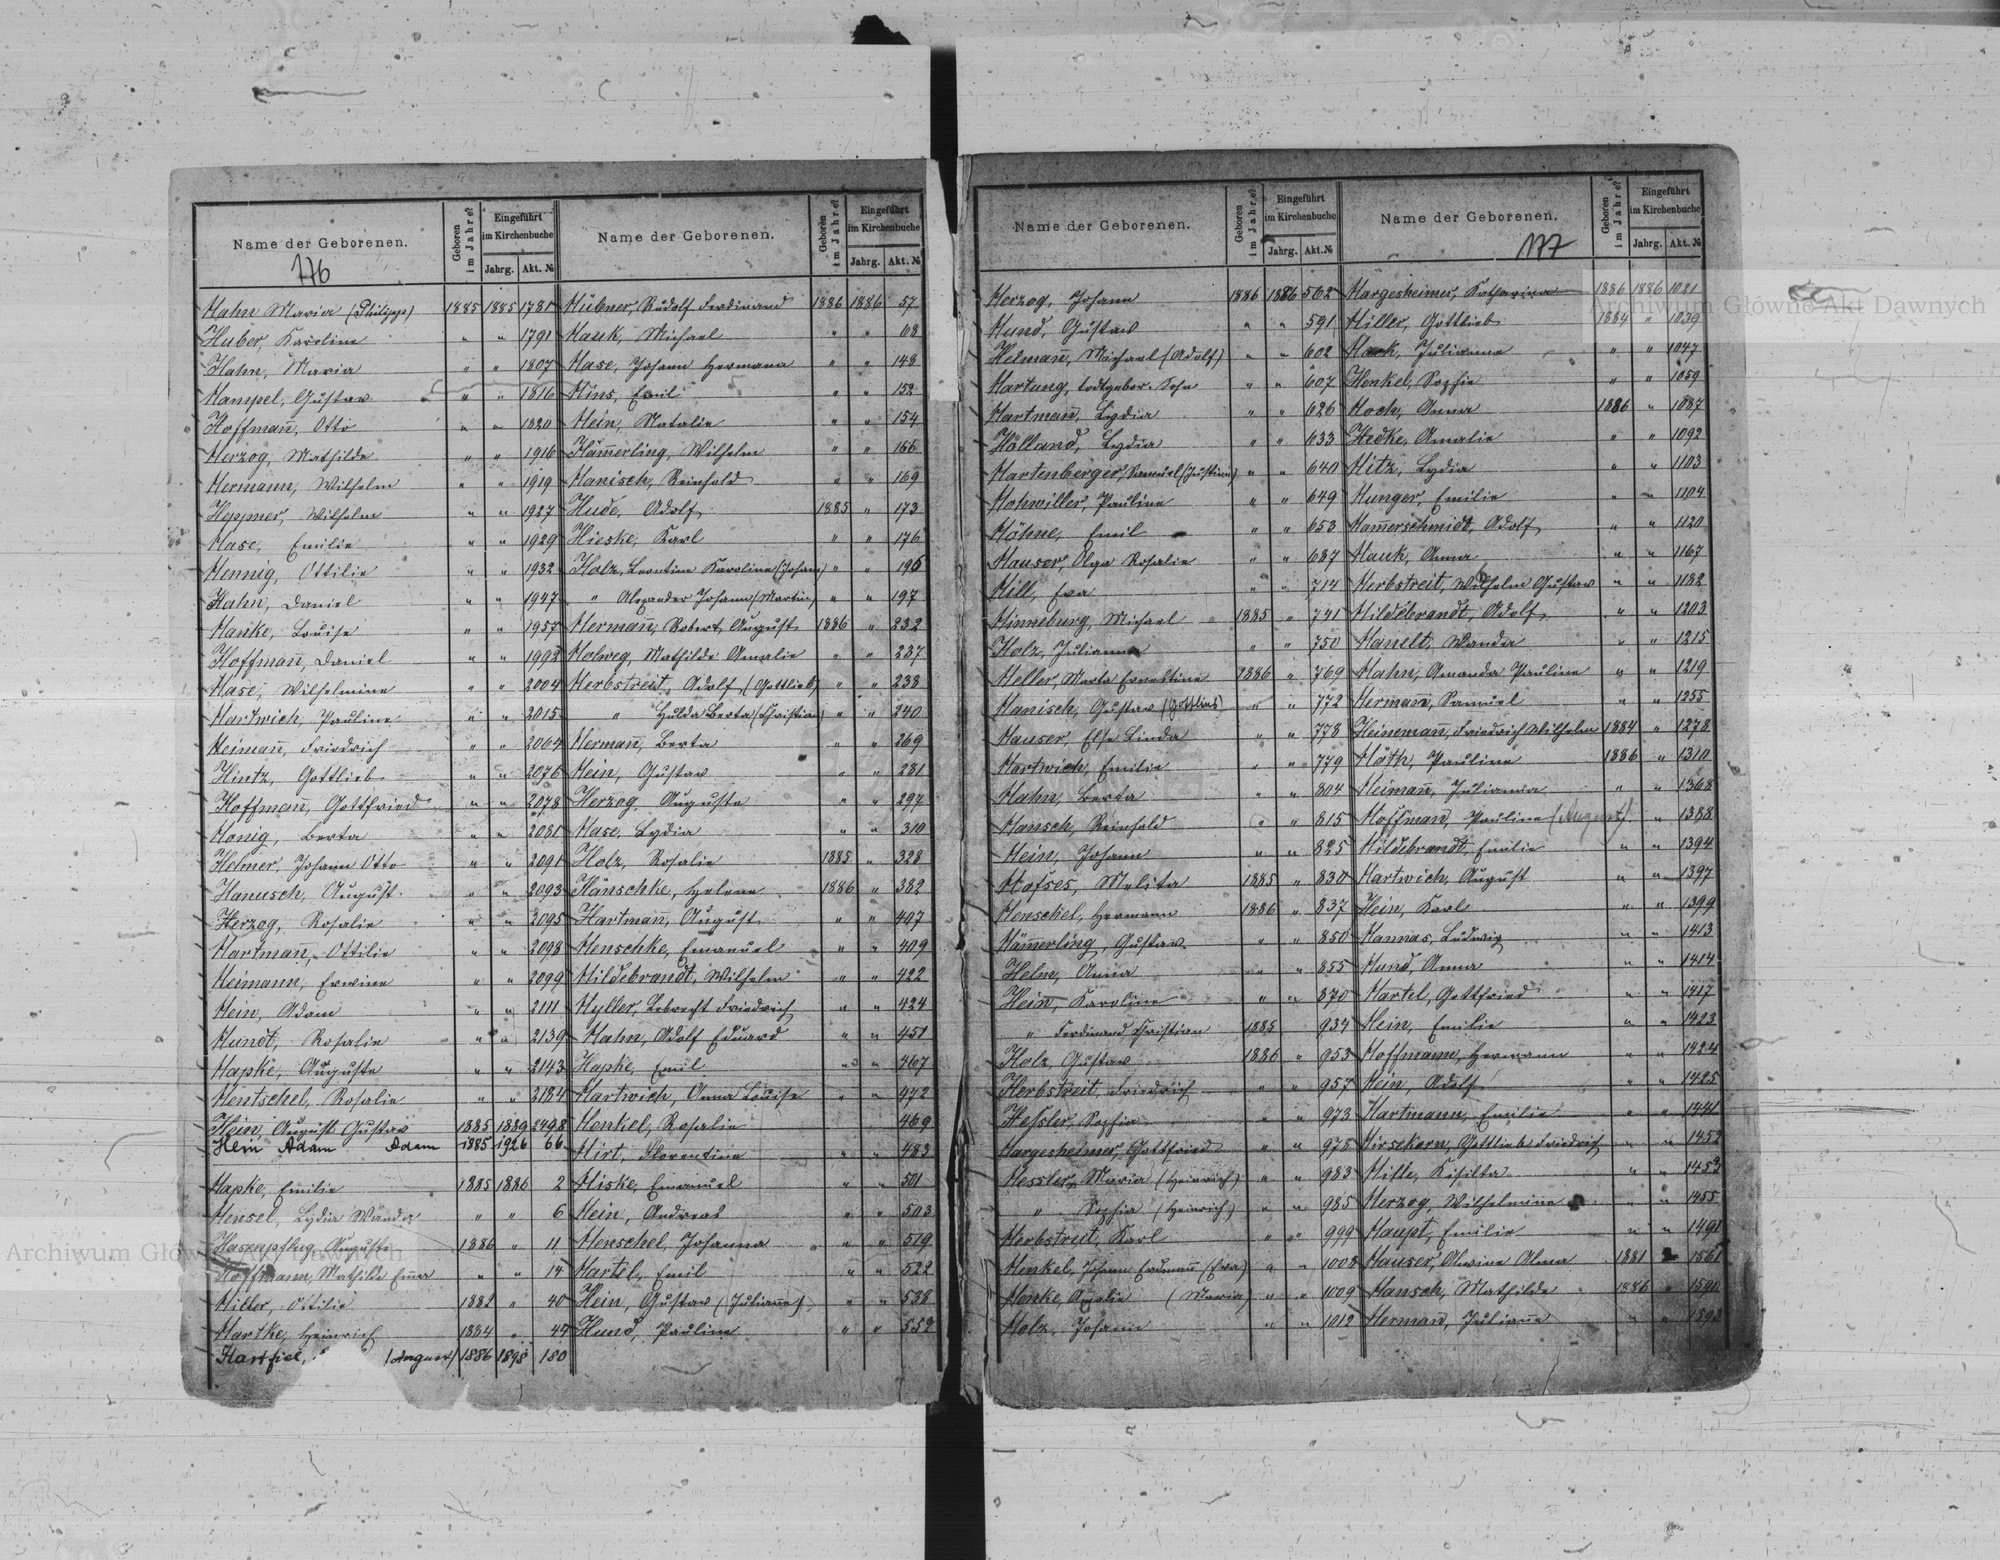 Name der Geborenen.
Geboren im Jahre?
Eingeführt im Kirchenbuche
Jahrg.
Akt. №
176
Hahn Maria (Philipp) 1885 1885 1781
Huber, Karoline " " 1791
Hahn, Maria " " 1807
Hampel, Gustav " " 1816
Hoffmañ, Otto " " 1820
Herzog, Mathilde " " 1916
Hermann, Wilhelm " " 1919
Heppner, Wilhelm " " 1927
Hase, Emilie " " 1929
Hennig, Ottilie " " 1932
Hahn, Daniel " " 1947
Hanke, Louise " " 1957
Hoffmañ, Daniel " " 1992
Hase, Wilhelmine " " 2004
Hartwich, Pauline " " 2015
Heimañ, Friedrich " " 2064
Hintz, Gottlieb " " 2076
Hoffmañ, Gottfried " " 2078
Honig, Berta " " 2081
Helmer, Johann Otto " " 2091
Hanusch, August " " 2093
Herzog, Rosalie " " 2095
Hartman, Ottilie " " 2098
Heimann, Erwine " " 2099
Hein, Adam " " 2111
Hundt, Rosalie " " 2139
Hapke, Auguste " " 2143
Hentschel, Rosalie " " 2184
Hein, August Gustav 1885 1889 2498
Hein Adam Adam 1885 1926 66
Hapke, Emilie 1885 1886 2
Hensel, Lydia Wanda " " 6
Hasenpflug, Auguste 1886 " 11
Hoffmann, Mathilde Em̃a " " 14
Hiller, Ottilie 1882 " 40
Hartke, Heinrich 1884 " 44
Hartfiel, (August) 1886 1898 180
Name der Geborenen.
Geboren im Jahre?
Eingeführt im Kirchenbuche
Jahrg.
Akt. №
Hübner, Rudolf Ferdinand 1886 1886 57
Hauk, Michael " " 68
Hase, Johann Hermann " " 148
Hins, Emil " " 152
Hein, Natalie " " 154
Häm̃erling, Wilhelm " " 166
Hanisch, Reinhold " " 169
Hude, Adolf 1885 " 173
Hieske, Karl " " 176
Holz, Leontine Karoline (Johañ) " " 196
" Alexander Johann (Martin) " " 197
Hermañ, Robert August 1886 " 232
Holweg, Mathilde Amalie " " 237
Herbstreit, Adolf (Gottlieb) " " 238
" Hulda Berta (Christian) " " 240
Hermañ, Berta " " 269
Hein, Gustav " " 281
Herzog, Auguste " " 297
Hase, Lydia " " 310
Holz, Rosalie 1885 " 328
Hänschke, Helene 1886 " 382
Hartmañ, August " " 407
Henschke, Emanuel " " 409
Hildebrandt, Wilhelm " " 422
Hyller, Lebrecht Friedrich " " 424
Hahn, Adolf Eduard " " 451
Hapke, Emil " " 467
Hartwich, Anna Louise " " 472
Henkel, Rosalie 469
Hirt, Florentine " " 483
Hiske, Emanuel " " 501
Hein, Andreas " " 503
Henschel, Johanna " " 519
Hartel, Emil " " 522
Hein, Gustav (Julianne) " " 538
Hund, Pauline " " 552
Name der Geborenen.
Geboren im Jahre?
Eingeführt im Kirchenbuche
Jahrg.
Akt. №
Herzog, Johann 1886 1886 562
Hund, Gustav " " 591
Helmañ, Michael (Adolf) " " 602
Hartung, todtgebor. Sohn " " 607
Hartmañ, Lydia " " 626
Holland, Lydia " " 633
Hartenberger, Samuel " " 640
Hohwiller, Pauline " " 649
Höhne, Emil " " 653
Hauser, Olga Rosalie " " 687
Hill, Eva " " 714
Hinneburg, Michael 1885 " 741
Holz, Julianna " " 750
Heller, Marta Ernestine 1886 " 769
Hanisch, Gustav (Gottlieb) " " 772
Hauser, Else Linda " " 778
Hartwich, Emilie " " 779
Hahn, Berta " " 804
Hansch, Reinhold " " 815
Hein, Johann " " 825
Melita 1885 " 830
Henschel, Hermann 1886 " 837
Häm̃erling, Gustav " " 850
Helm, Anna " " 855
Hein, Karoline " " 870
" Ferdinand Christian 1885 934
Holz, Gustav 1886 " 953
Herbstreit, Friedrich " " 957
Hessler, Sophia " " 973
Hargesheimer, Gottfried " " 978
Hessler, Maria (Heinrich) " " 983
" Sophia (Heinrich) " " 985
Herbstreit, Karl " " 999
Henkel, Johann Erdmañ (Ewa) " " 1008
Henke, Amalie (Maria) " " 1009
Holz, Johann " " 1012
Name der Geborenen.
Geboren im Jahre?
Eingeführt im Kirchenbuche
Jahrg.
Akt. №
177
Hargesheimer, Katharina 1886 1886 1021
Hiller, Gottlieb 1884 " 1039
Hack, Julianne " " 1047
Henkel, Sophie " " 1059
Hoch, Anna 1886 " 1087
Hedke, Amalie " " 1092
Hitz, Lydia " " 1103
Hunger, Emilie " " 1104
Ham̃erschmidt, Adolf " " 1120
Hauk, Anna " " 1167
Herbstreit, Wilhelm Gustav " " 1182
Hildebrandt, Adolf " " 1203
Hanelt, Wanda " " 1215
Hahn, Amanda Pauline " " 1219
Hermañ, Samuel " " 1255
Heinemañ, Friedrich Wilhelm 1884 " 1278
Höth, Pauline 1886 " 1310
Heimañ, Julianna " " 1368
Hoffman, Pauline (August) " 1388
Hildebrandt, Emilie " " 1394
Hartwich, August " " 1397
Hein, Karl " " 1399
Hannas, Ludwig " " 1413
Hund, Anna " " 1414
Hartel, Gottfried " " 1417
Hein, Emilie " " 1423
Hoffmann, Hermann " " 1424
Hein, Adolf " " 1425
Hartmann, Emilie " " 1441
Hirsekorn, Gottlieb Friedrich " " 1452
" " 1453
Herzog, Wilhelmine " " 1455
Haupt, Emilie " " 1491
Hauser, Alwine Alma 1881 1561
Hansch, Mathilde 1886 " 1590
Hermañ, Juliañe " " 1592
Archiwum Główne Akt Dawnych
Archiwum Główne Akt Dawnych